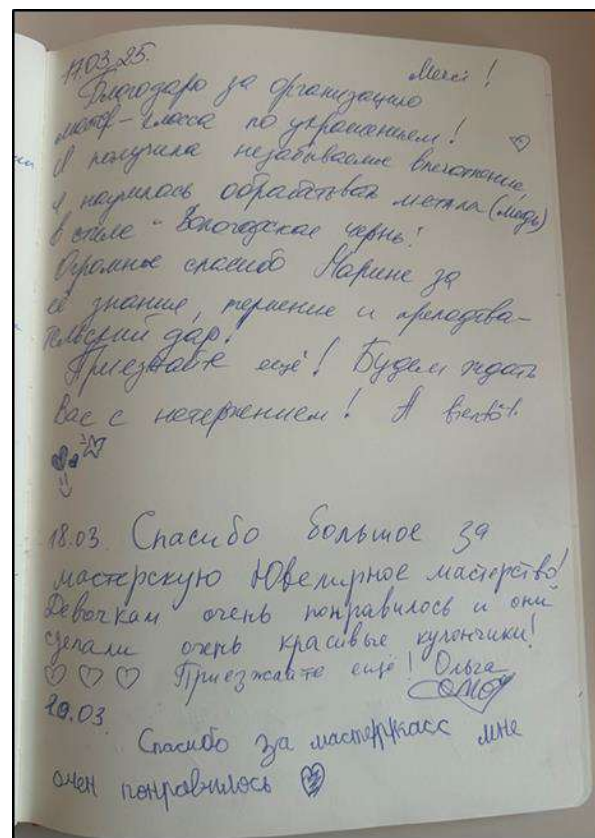 17.03.25. Merci!
Благодарю за организацию
мастер-класса по украшениям!
Я получила незабываемые впечатления,
я научилась обрабатывать металл (медь)
в стиле "Вологодская чернь!
Огромное спасибо Марине за
её знания, терпение и преподава-
тельский дар!
Приезжайте ещё! Будем ждать
Вас с нетерпением! A bientôt.
18.03. Спасибо большое за
мастерскую Ювелирное мастерство!
Девочкам очень понравилось и они
сделали очень красивые кулончики!
Приезжайте ещё! Ольга
20.03.
Спасибо за мастеркласс мне
очен понравилось